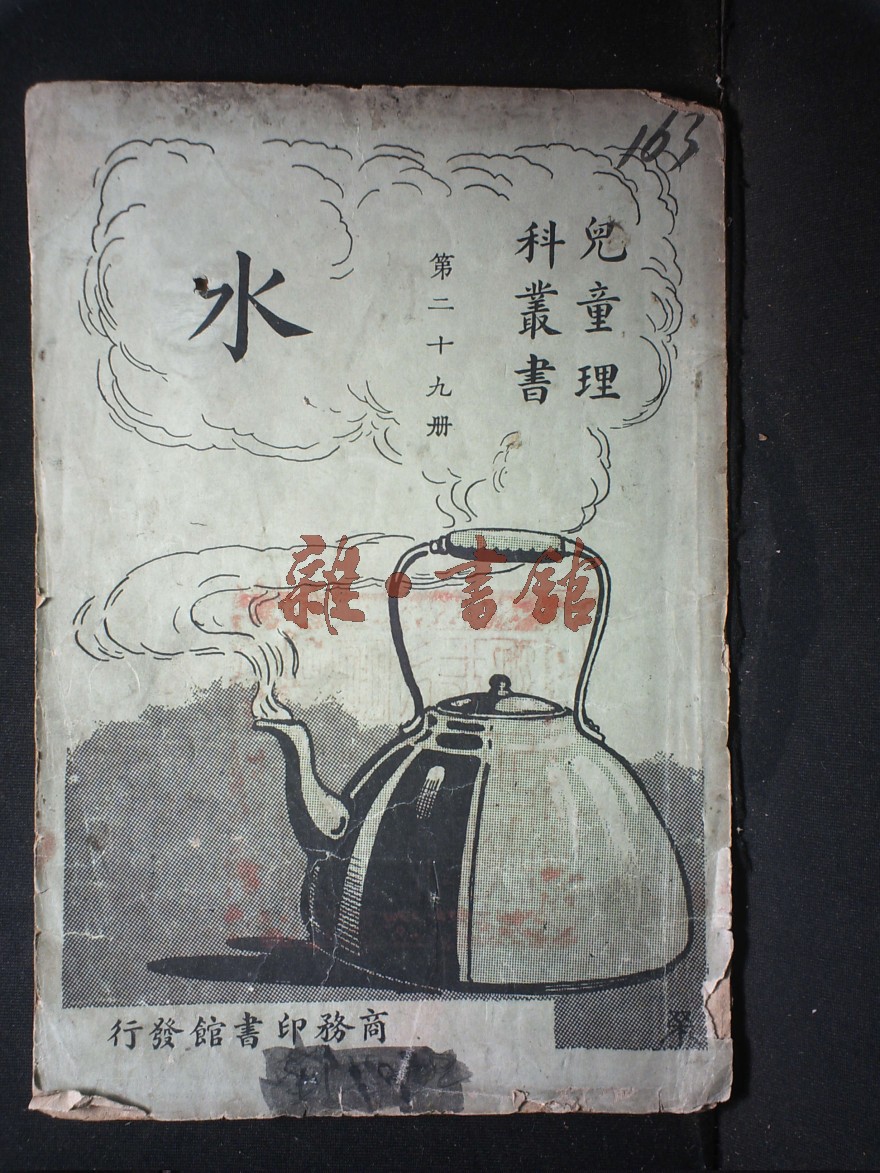 163
兒童理
科叢書
第二十九册
水
雜·書館
商務印書館發行